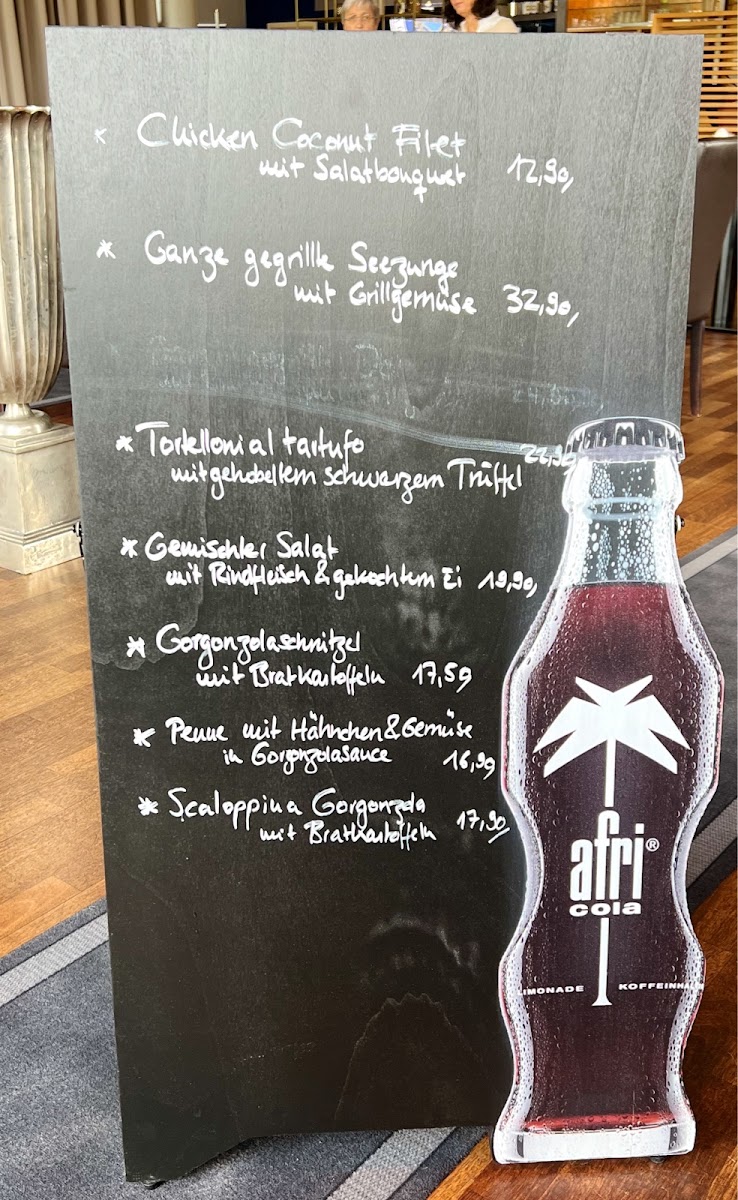 * Chicken Coconut Filet
mit Salatbouquet 12,90,
* Ganze gegrillte Seezunge
mit Grillgemüse 32,90,
* Tortelloni al tartufo
mit gehobeltem schwarzem Trüffel
* Gemischter Salat
mit Rindfleisch & gekochtem Ei 19,90,
* Gorgonzolaschnitzel
mit Bratkartoffeln 17,59
* Penne mit Hähnchen & Gemüse
in Gorgonzolasauce 16,99
* Scaloppina Gorgonzola
mit Bratkartoffeln 17,90,
afri®
cola
LIMONADE KOFFEINHA